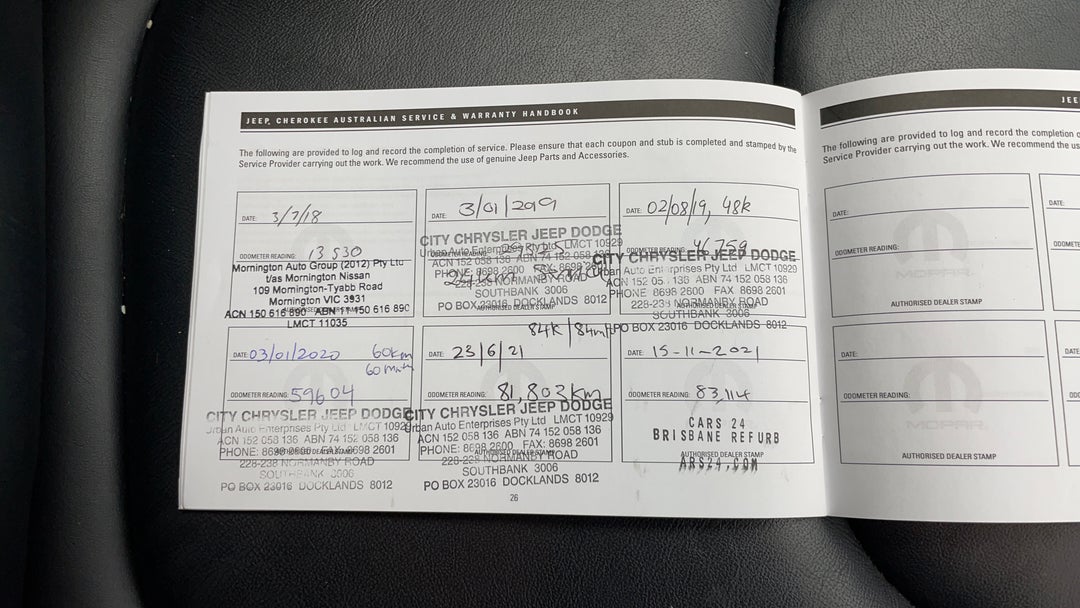 JEEP CHEROKEE AUSTRALIAN SERVICE & WARRANTY HANDBOOK
The following are provided to log and record the completion of service. Please ensure that each coupon and stub is completed and stamped by the
Service Provider carrying out the work. We recommend the use of genuine Jeep Parts and Accessories.
DATE: 3/7/18
ODOMETER READING: 13530
Mornington Auto Group (2012) Pty Ltd
t/as Mornington Nissan
109 Mornington-Tyabb Road
Mornington VIC 3931
ACN 150 616 890 ABN 71 150 616 890
LMCT 11035
DATE: 3/01/2019
CITY CHRYSLER JEEP DODGE
Urban Auto Enterprises Pty Ltd LMCT 10929
ACN 152 058 136 ABN 74 152 058
PHONE: 8698 2600
228-238 NORMANBY ROAD
SOUTHBANK 3006
AUTHORISED DEALER STAMP
PO BOX 23016 DOCKLANDS 8012
DATE: 02/08/19, 48k
ODOMETER READING: 46759
CITY CHRYSLER JEEP DODGE
Urban Auto Enterprises Pty Ltd LMCT 10929
ACN 152 058 136 ABN 74 152 058 136
PHONE 8698 2600 FAX 8698 2601
228-238 NORMANBY ROAD
AUTHORISED DEALER STAMP
SOUTHBANK 3006
PO BOX 23016 DOCKLANDS 8012
DATE: 03/01/2020 60km
60mnth
ODOMETER READING: 59604
CITY CHRYSLER JEEP DODGE
Urban Auto Enterprises Pty Ltd LMCT 10929
ACN 152 058 136 ABN 74 152 058 136
PHONE: 8698 2600 FAX: 8698 2601
AUTHORISED DEALER STAMP
228-238 NORMANBY ROAD
SOUTHBANK 3006
PO BOX 23016 DOCKLANDS 8012
84k/84mth
DATE: 23/6/21
ODOMETER READING: 81,803km
CITY CHRYSLER JEEP DODGE
Urban Auto Enterprises Pty Ltd LMCT 10929
ACN 152 058 136 ABN 74 152 058 136
PHONE: 8698 2600 FAX: 8698 2601
AUTHORISED DEALER STAMP
228-238 NORMANBY ROAD
SOUTHBANK 3006
PO BOX 23016 DOCKLANDS 8012
DATE: 15-11-2021
ODOMETER READING: 83,114
CARS 24
BRISBANE REFURB
AUTHORISED DEALER STAMP
ARS24.COM
26
JEE
The following are provided to log and record the completion o
Service Provider carrying out the work. We recommend the us
DATE:
ODOMETER READING:
MOPAR
AUTHORISED DEALER STAMP
DATE:
ODOMETE
DATE:
ODOMETER READING:
MOPAR
AUTHORISED DEALER STAMP
DATE
ODOM